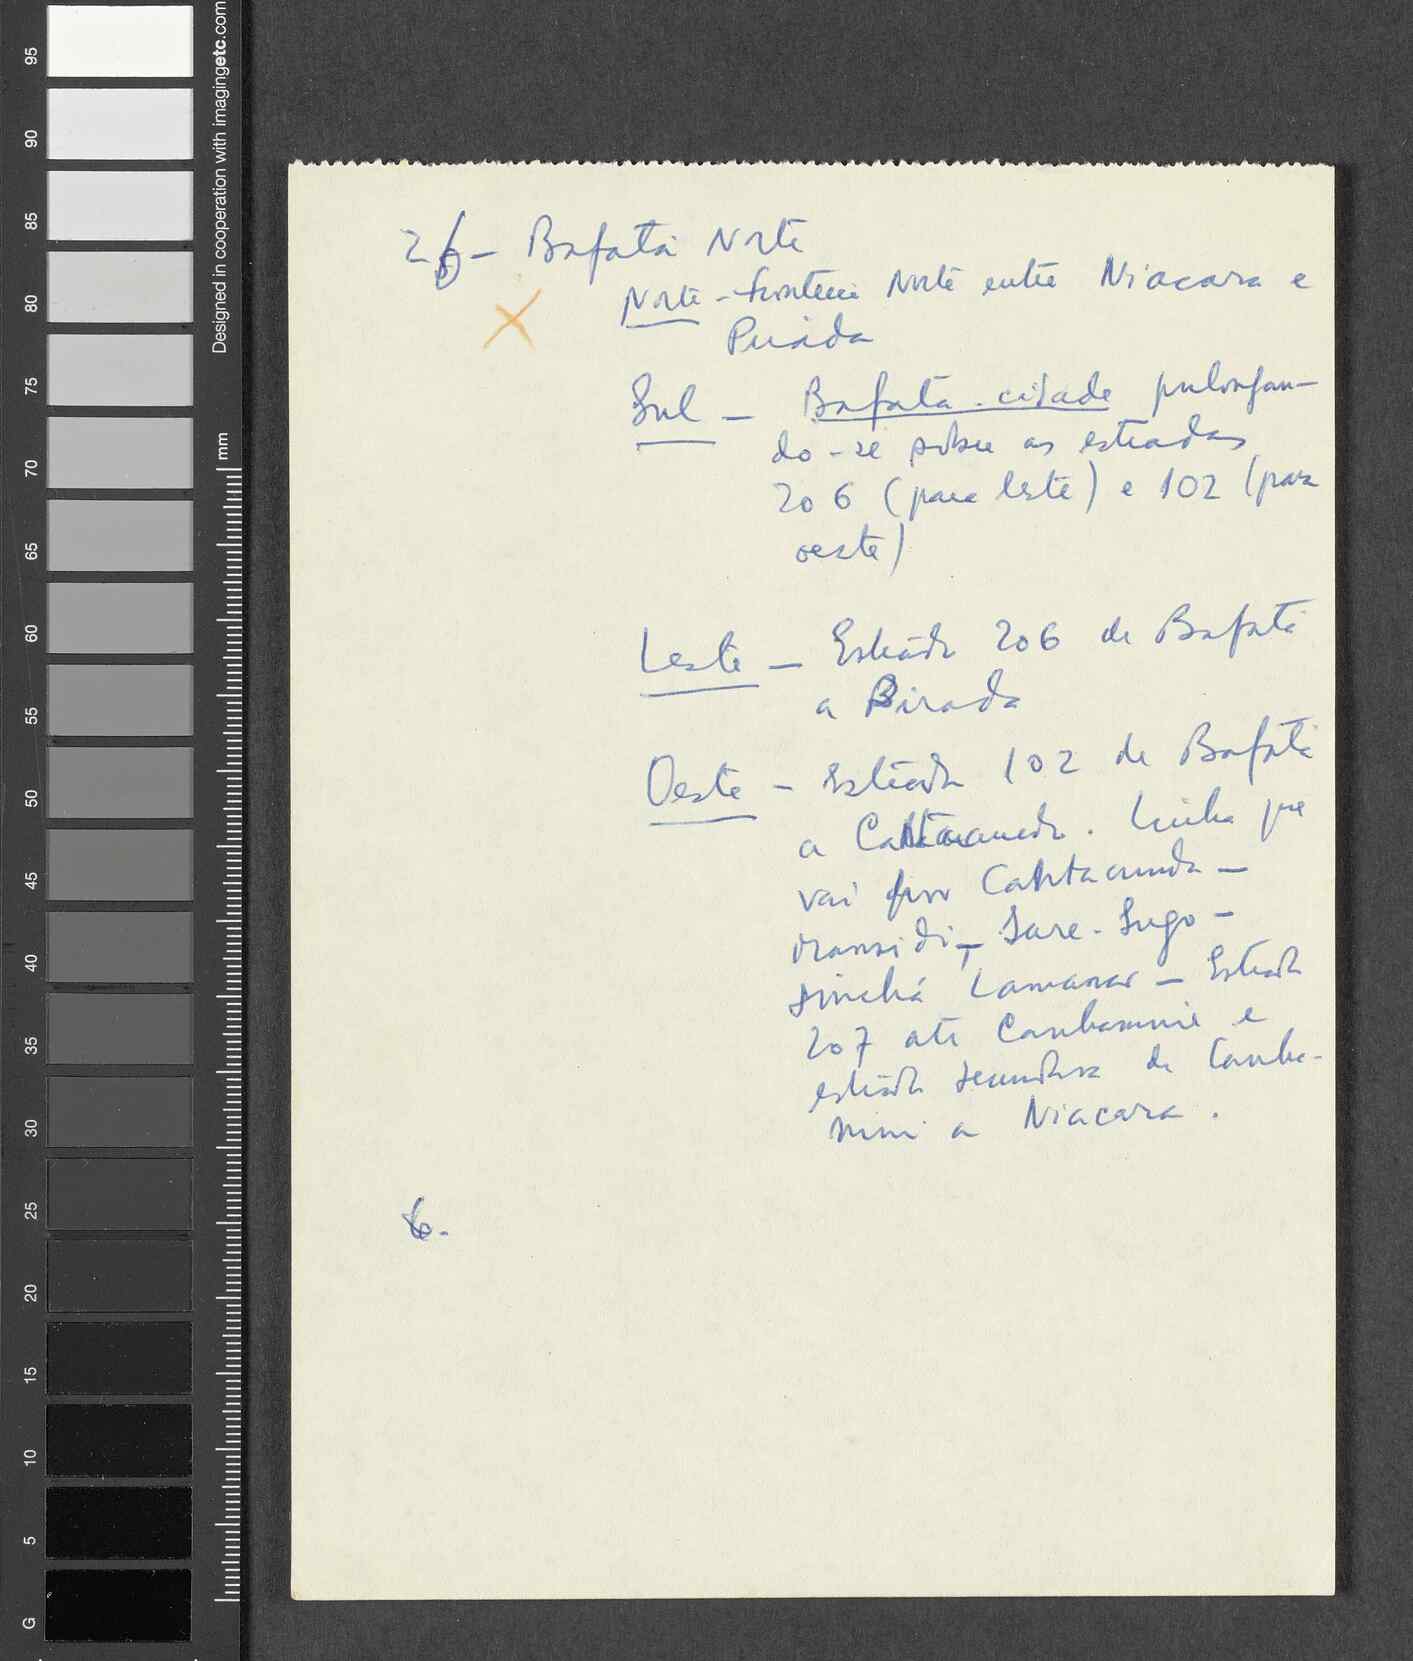 95
90
85
80
75
70
65
60
55
50
45
40
35
30
25
20
15
10
5
G
Designed in cooperation with imagingetc.com
mm
26 - Bafatá Norte
Norte - fronteira Norte entre Niacara e
Pirada
Sul - Bafatá-cidade prolongan-
do-se sobre as estradas
206 (para leste) e 102 (para
oeste)
Leste - Estrada 206 de Bafatá
a Pirada
Oeste - estrada 102 de Bafatá
a Cantacunda. Linha que
vai por Cantacunda -
Mansidi - Sare-Sugo -
Sinchá Lamanar - Estrada
207 até Cambamunie e
estrada secundária de Camba-
muni a Niacara.
6.